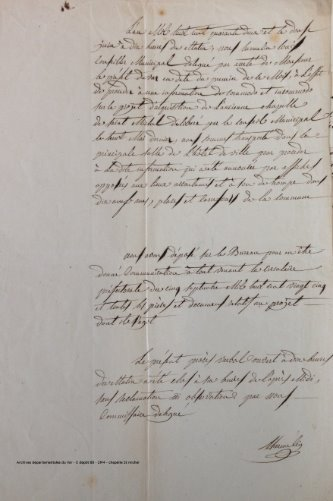 L'an Mil huit cent quarante deux et le douze
juin à dix heures du matin, nous
Conseiller Municipal délégué par arrêté de Monsieur
le maire de en date du premier de ce Mois, à l'effet
de procéder à une information de commodo et incommodo
sur le projet d'acquisition de l'ancienne chapelle
de Saint Michel délibéré par le conseil Municipal
le huit Mai dernier, nous sommes transporté dans la
principale salle de l'hôtel de ville pour procéder
à la dite information qui a été annoncée par affiches
apposées aux lieux accoutumés et à son de trompe dans
les rues, places et carrefours de la commune
avons déposé sur le Bureau pour en être
donné Communication à tout venant la circulaire
préfectorale du cinq septembre Mil huit cent vingt cinq
et toutes les pièces et documents relatifs au projet
dont il s'agit
Le présent procès verbal ouvert à dix heures
du matin a été clos à heures de l'après Midi,
sans réclamation ni observation par nous
Commissaire délégué
Archives départementales du Var - E dépôt 83 - 2M4 - chapelle St michel